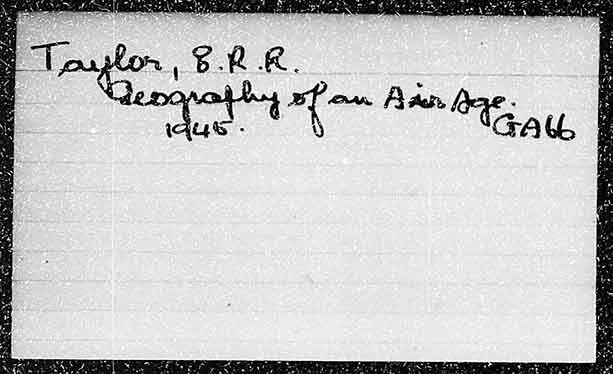 Taylor, E.R.R.
Geography of an Air Age.
1945. GA66